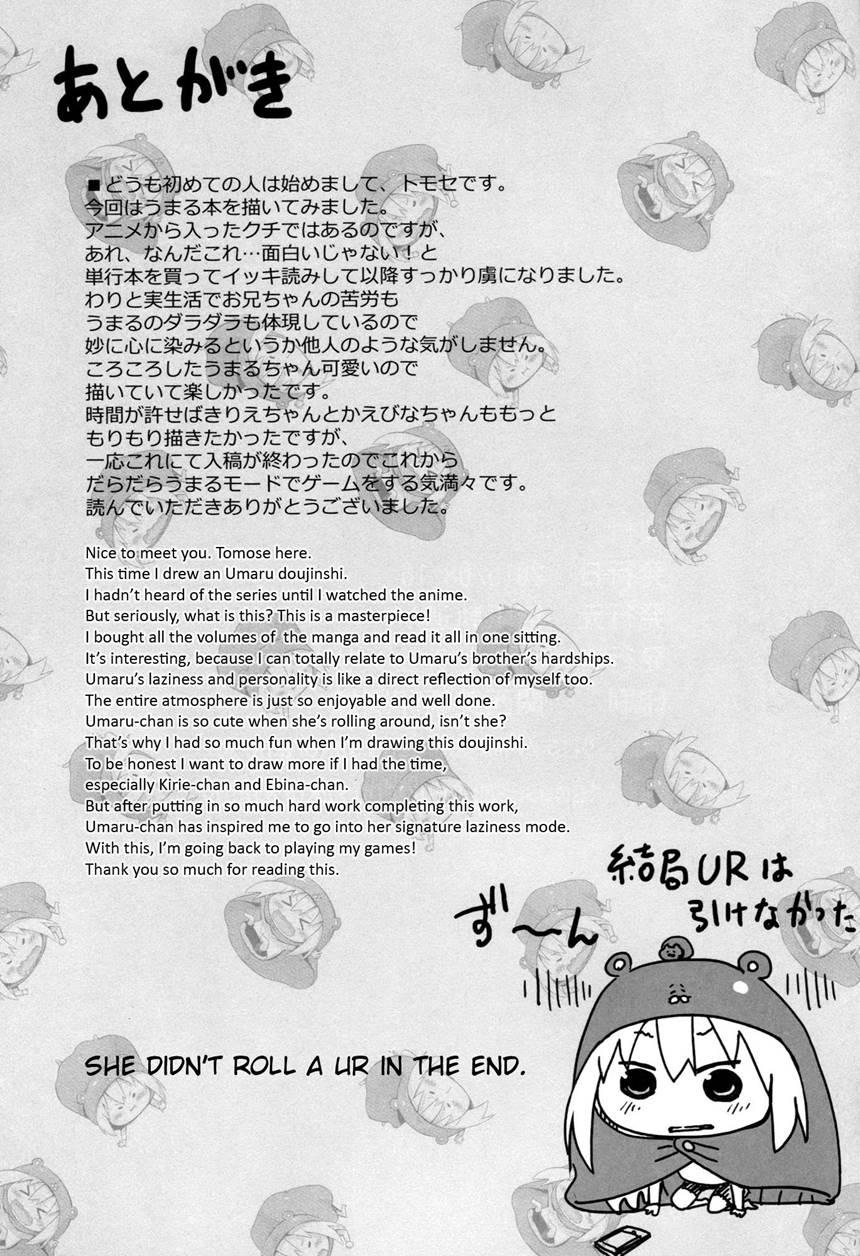 あとがき
■どうも初めての人は始めまして、トモセです。
今回はうまる本を描いてみました。
アニメから入ったクチではあるのですが、
あれ、なんだこれ…面白いじゃない！と
単行本を買ってイッキ読みして以降すっかり虜になりました。
わりと実生活でお兄ちゃんの苦労も
うまるのダラダラも体現しているので
妙に心に染みるというか他人のような気がしません。
ころころしたうまるちゃん可愛いので
描いていて楽しかったです。
時間が許せばきりえちゃんとかえびなちゃんももっと
もりもり描きたかったですが、
一応これにて入稿が終わったのでこれから
だらだらうまるモードでゲームをする気満々です。
読んでいただきありがとうございました。
Nice to meet you. Tomose here.
This time I drew an Umaru doujinshi.
I hadn't heard of the series until I watched the anime.
But seriously, what is this? This is a masterpiece!
I bought all the volumes of the manga and read it all in one sitting.
It's interesting, because I can totally relate to Umaru's brother's hardships.
Umaru's laziness and personality is like a direct reflection of myself too.
The entire atmosphere is just so enjoyable and well done.
Umaru-chan is so cute when she's rolling around, isn't she?
That's why I had so much fun when I'm drawing this doujinshi.
To be honest I want to draw more if I had the time,
especially Kirie-chan and Ebina-chan.
But after putting in so much hard work completing this work,
Umaru-chan has inspired me to go into her signature laziness mode.
With this, I'm going back to playing my games!
Thank you so much for reading this.
結局URは
引けなかった
ず〜ん
SHE DIDN'T ROLL A UR IN THE END.